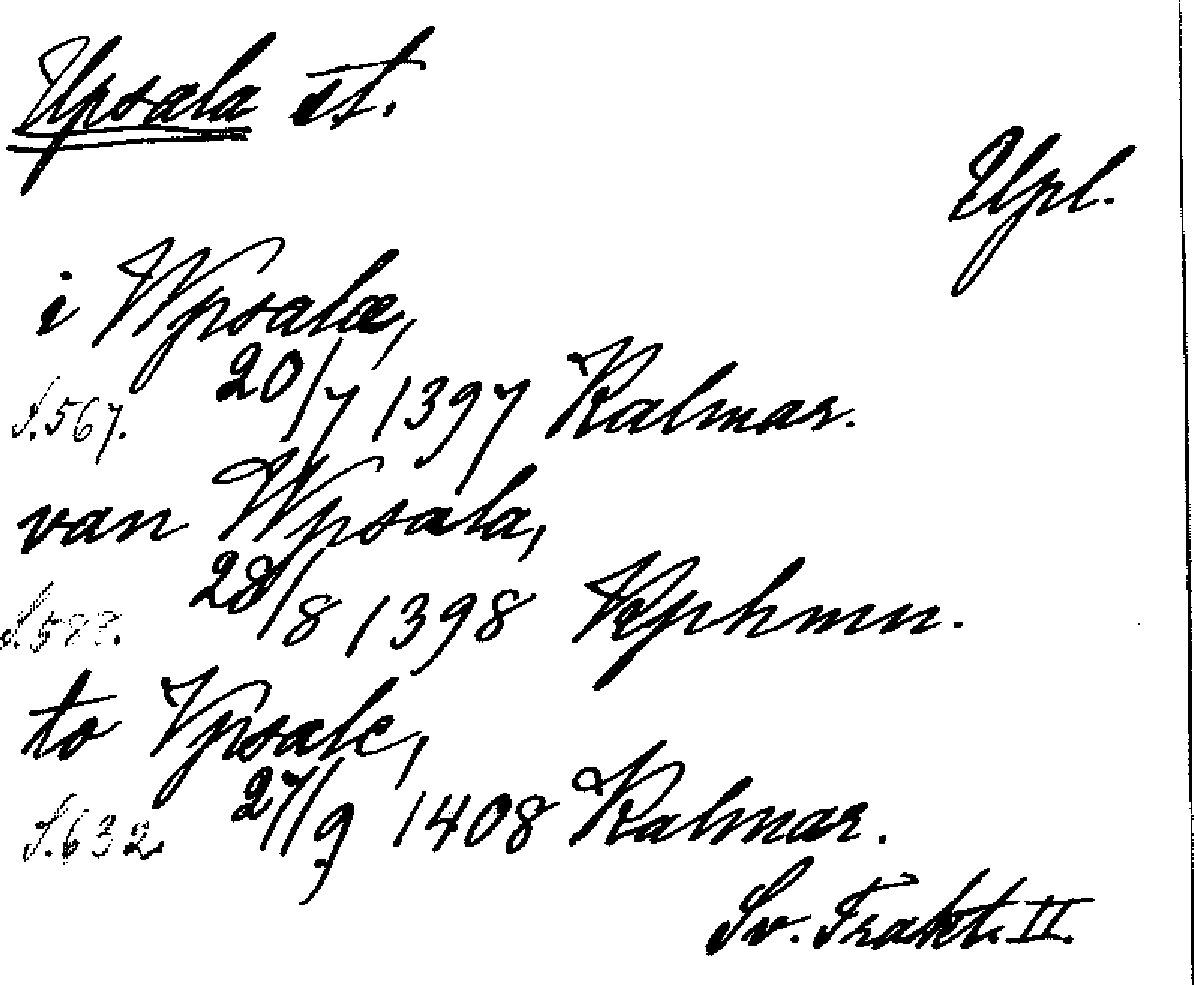 Upsala st.
Upl.
i Wpsalæ,
S.567. 20/7 1397 Kalmar.
van Wpsala,
28/8 1398 Kphmn.
to Vpsale,
S.632. 27/9 1408 Kalmar.
Sv. Trakt. II.